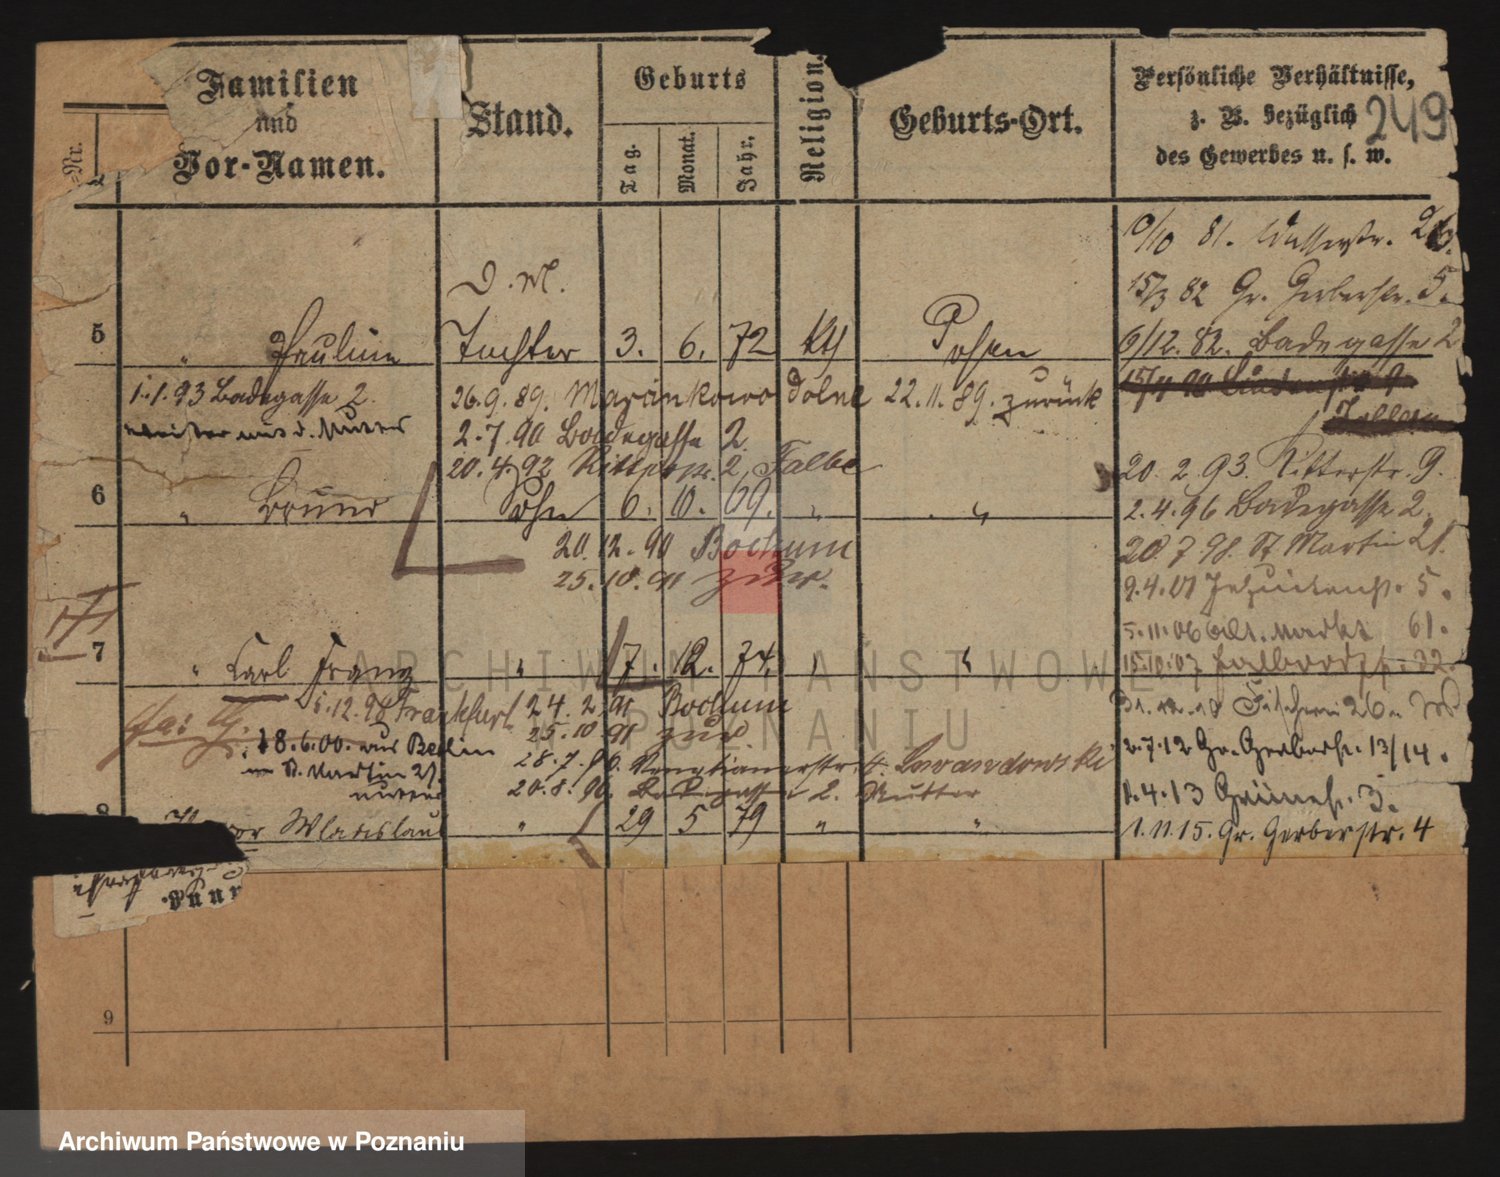 Familien
und
Vor-Namen.
Stand.
Geburts
Tag.
Monat.
Jahr.
Religion.
Geburts-Ort.
Persönliche Verhältnisse,
z. B. bezüglich
des Gewerbes u. s. w.
249
-Nr.
10/10 81. Wasserstr. 26.
15/3 82 Gr. Gerberstr. 5.
D. M.
5 " Pauline Tochter 3. 6. 72 kth Posen
6/12. 82. Badegasse 2
1.1.93 Badegasse 2.
26.9.89. Marainkowo dolne 22.11.89. zurück
2.7.90 Badegasse 2.
20.4.92 Ritterstr. 2, Falbe
20.2.93. Ritterstr. 9.
6 " Bruno Sohn 6. 10. 69. " "
2.4.96 Badegasse 2.
20.12.90 Bochum
20.7.98. St Martin 21.
25.10.91 zur.
9.4.01 Jesuitenstr. 5.
5.11.06 Alt. Markt 61.
7 " Carl Franz " 7. 12. 74. " "
15.10.07 32.
1.12.98 Frankfurt 24.2.91 Bochum
Fischerei 26.
25.10.91 zur.
18.6.00. aus Berlin
2.7.12 Gr. Gerberstr. 13/14.
St. Martin 21.
28.7. Venetianerstr. 4. Lewandowski
Mutter
20.8.90. Badegasse 2. Mutter
1.4.13 Grünestr. 3.
8 Wladislaus " 29 5 79 " "
1.11.15. Gr. Gerberstr. 4
9
ARCHIWUM PAŃSTWOWE
W POZNANIU
Archiwum Państwowe w Poznaniu